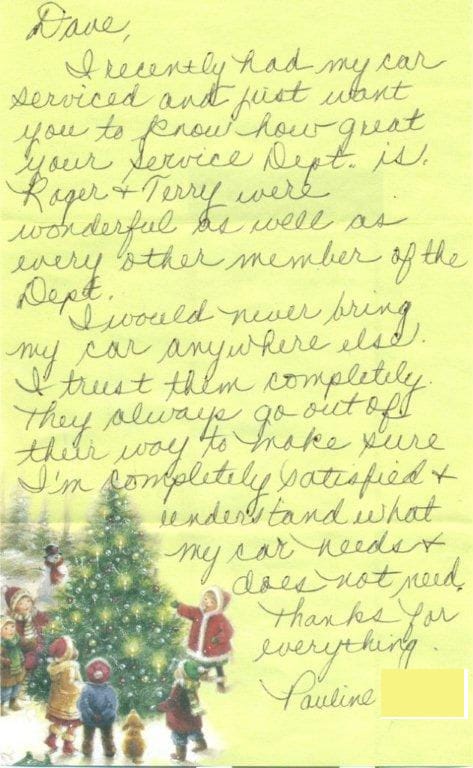 Dave,
I recently had my car
serviced and just want
you to know how great
your Service Dept. is.
Roger + Terry were
wonderful as well as
every other member of the
Dept.
I would never bring
my car anywhere else.
I trust them completely.
They always go out of
their way to make sure
I'm completely satisfied +
understand what
my car needs +
does not need.
Thanks for
everything.
Pauline